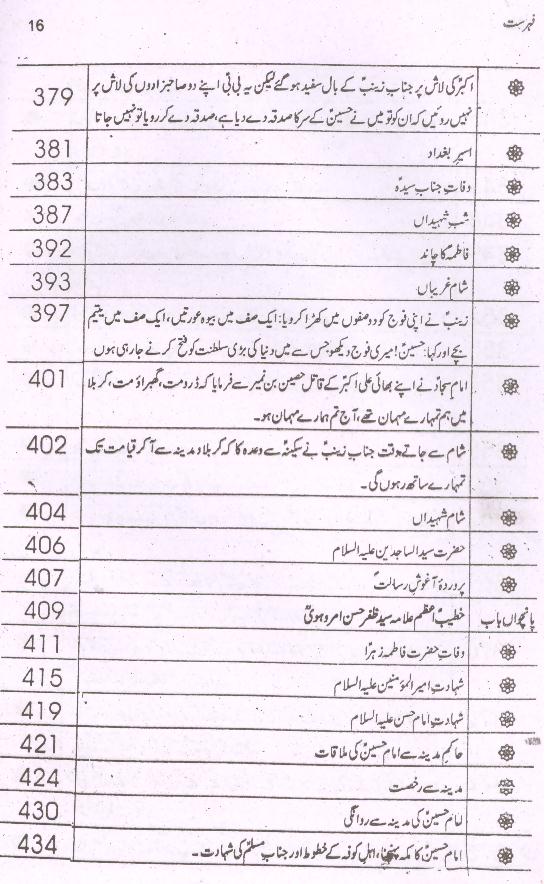 فہرست 16
اکبرؑ کی لاش پر جناب زینبؑ کے بال سفید ہو گئے لیکن یہ بی بی اپنے دو صاحبزادوں کی لاش پر
نہیں روئیں کہ ان کو تو میں نے حسینؑ کے سر کا صدقہ دے دیا ہے، صدقہ دے کر رویا تو نہیں جاتا 379
اسیرِ بغداد 381
وفاتِ جنابِ سیدہؑ 383
شبِ شہیداں 387
فاطمہؑ کا چاند 392
شامِ غریباں 393
زینبؑ نے اپنی فوج کو دو صفوں میں کھڑا کر دیا: ایک صف میں بیوہ عورتیں، ایک صف میں یتیم 397
بچے اور کہا: حسینؑ! میری فوج دیکھو جس سے میں دنیا کی بڑی سلطنت کو فتح کرنے جا رہی ہوں
امام سجادؑ نے اپنے بھائی علی اکبرؑ کے قاتل حصین بن نمیر سے فرمایا کہ ڈرو مت، گھبراؤ مت، کربلا 401
میں ہم تمہارے مہمان تھے، آج تم ہمارے مہمان ہو۔
شام سے جاتے وقت جناب زینبؑ نے سکینہؑ سے وعدہ کا کہ کربلا و مدینہ سے آ کر قیامت تک 402
تمہارے ساتھ رہوں گی۔
شامِ شہیداں 404
حضرت سید الساجدین علیہ السلام 406
پروردۂ آغوشِ رسالتؐ 407
پانچواں باب خطیبِ اعظم علامہ سید ظفر حسن امروہویؒ 409
وفاتِ حضرت فاطمہ زہراؑ 411
شہادتِ امیرالمؤمنین علیہ السلام 415
شہادتِ امام حسن علیہ السلام 419
حاکمِ مدینہ سے امام حسینؑ کی ملاقات 421
مدینہ سے رخصت 424
امام حسینؑ کی مدینہ سے روانگی 430
امام حسینؑ کا مکہ پہنچنا، اہلِ کوفہ کے خطوط اور جناب مسلمؑ کی شہادت۔ 434